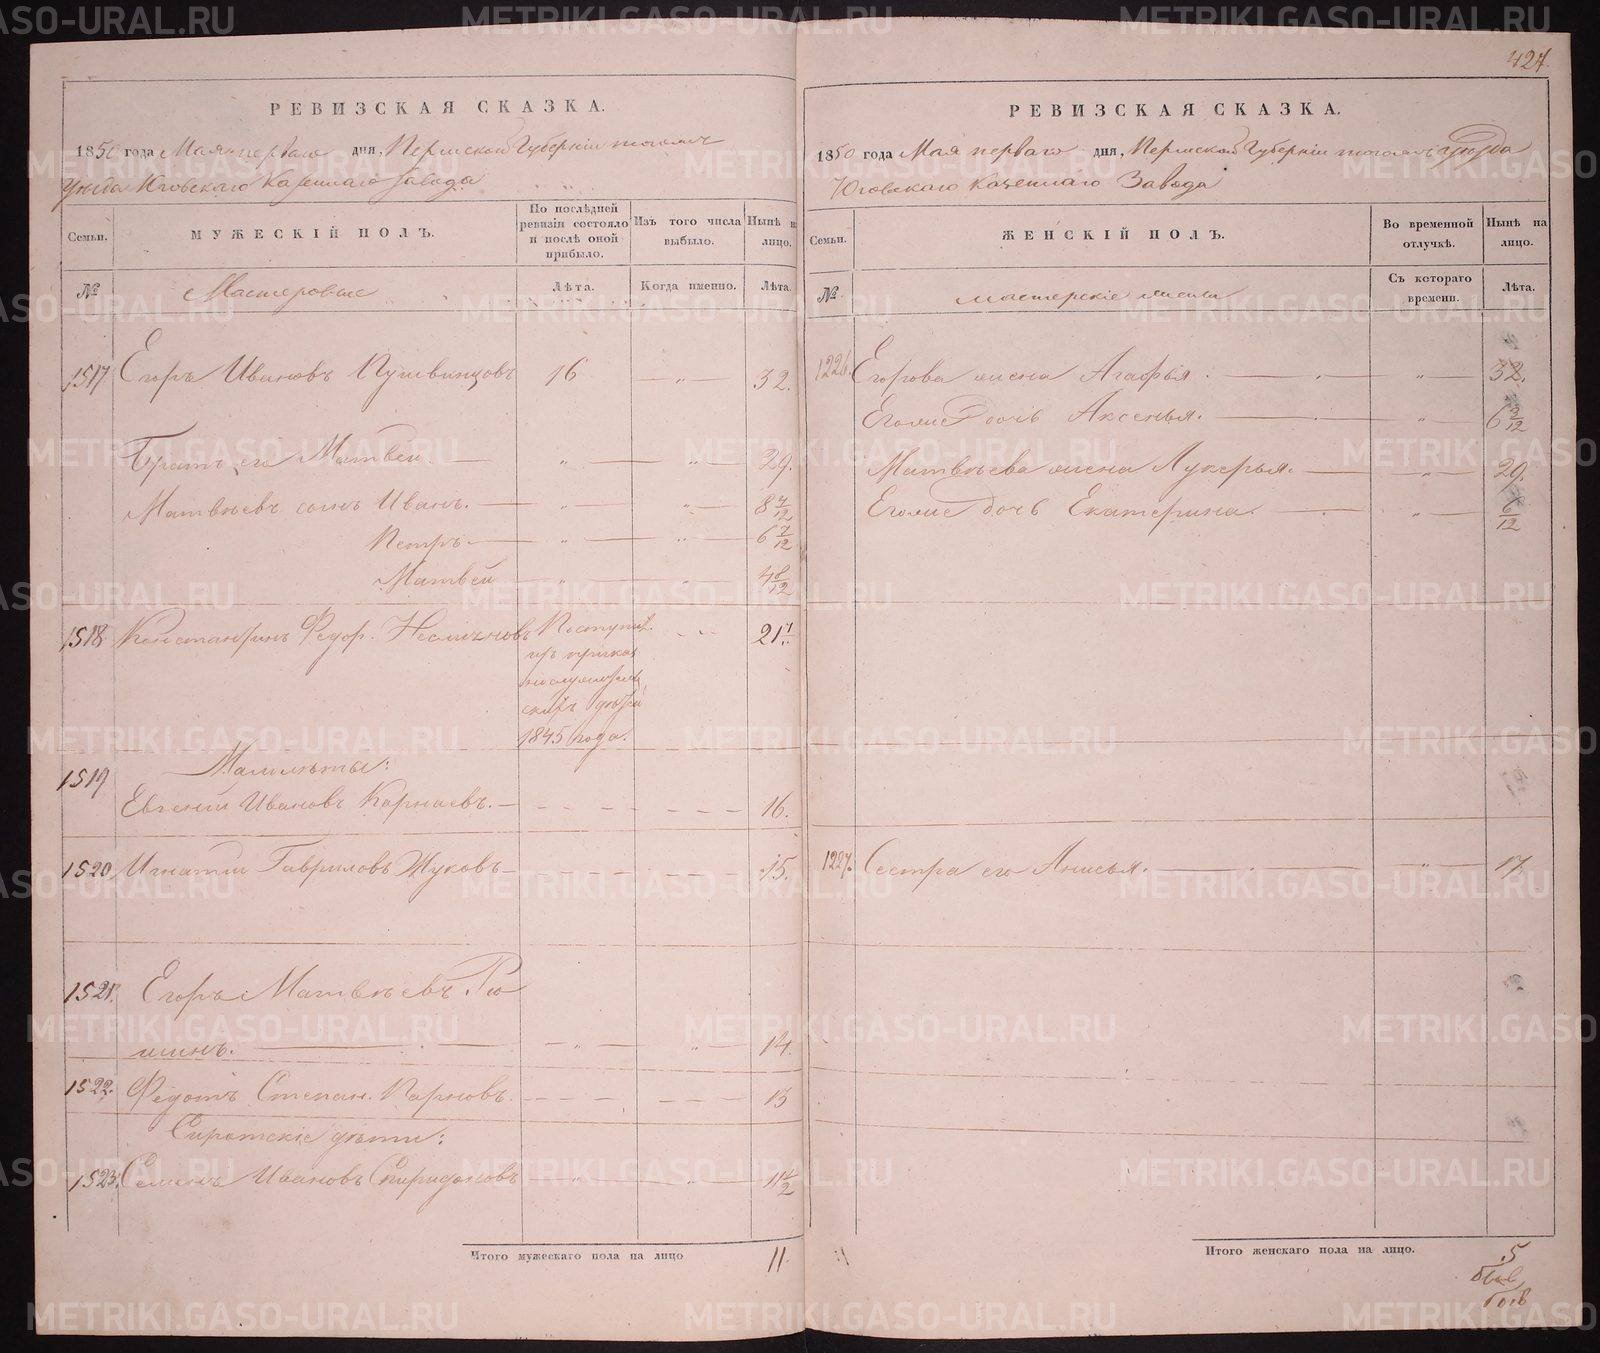 427.
РЕВИЗСКАЯ СКАЗКА.
1850 года Мая первого дня, Пермской Губернiи тогожъ
уѣзда Юговскаго Казеннаго Завода
Семьи.
МУЖЕСКІЙ ПОЛЪ.
По послѣдней ревизіи состояло и послѣ оной прибыло.
Изъ того числа выбыло.
Нынѣ на лицо.
№
Мастеровые
Лѣта.
Когда именно.
Лѣта.
1517 Егоръ Ивановъ Пушвинцовъ 16 — „ — 32.
Братъ его Матвей. — „ — „ — 29.
Матвѣевъ сынъ Иванъ. — „ — „ — 8 7/12
Петръ. — „ — „ — 6 7/12
Матвей „ — „ — 4 8/12
1518 Константинъ Федор. Поступил.
1845 года.
1519 Малолѣты:
Евгений Ивановъ Карнаевъ. — 16.
1520 Игнатий Гавриловъ Жуковъ — 15.
1521. Егоръ Матвѣевъ Рю
минъ. — „ — „ — 14.
1522. Федотъ Степан. — 13
Сиротскіе дѣти:
1523. Семенъ Ивановъ Спиридоновъ „ — „ — 11 1/2
Итого мужескаго пола на лицо 11.
РЕВИЗСКАЯ СКАЗКА.
1850 года Мая первого дня, Пермской Губернiи тогожъ уѣзда
Юговскаго Казеннаго Завода
Семьи.
ЖЕНСКІЙ ПОЛЪ.
Во временной отлучкѣ.
Нынѣ на лицо.
№
мастерскіе жены
Съ котораго времени.
Лѣта.
1226. Егорова жена Агафья. — „ — 32.
Егоже дочь Аксенья. — „ — 6 3/12
Матвѣева жена Лукерья. — „ — 29.
Егоже дочь Екатерина. — „ — 6/12
1227. Сестра его Анисья. — „ — 17.
Итого женскаго пола на лицо. 5